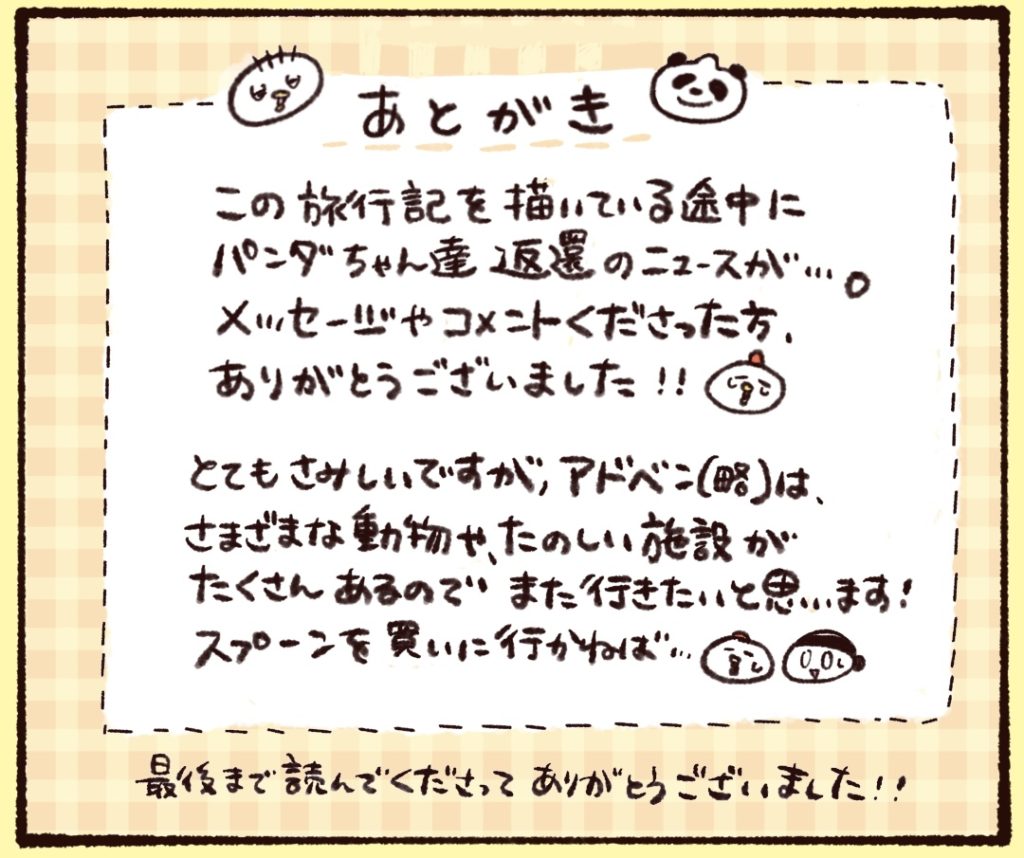 あとがき
この旅行記を描いている途中に
パンダちゃん達 返還のニュースが…。
メッセージやコメントくださった方、
ありがとうございました!!
とてもさみしいですが、アドベン(略)は、
さまざまな動物や、たのしい施設が
たくさんあるので また行きたいと思います!
スプーンを買いに行かねば…
最後まで読んでくださって ありがとうございました!!